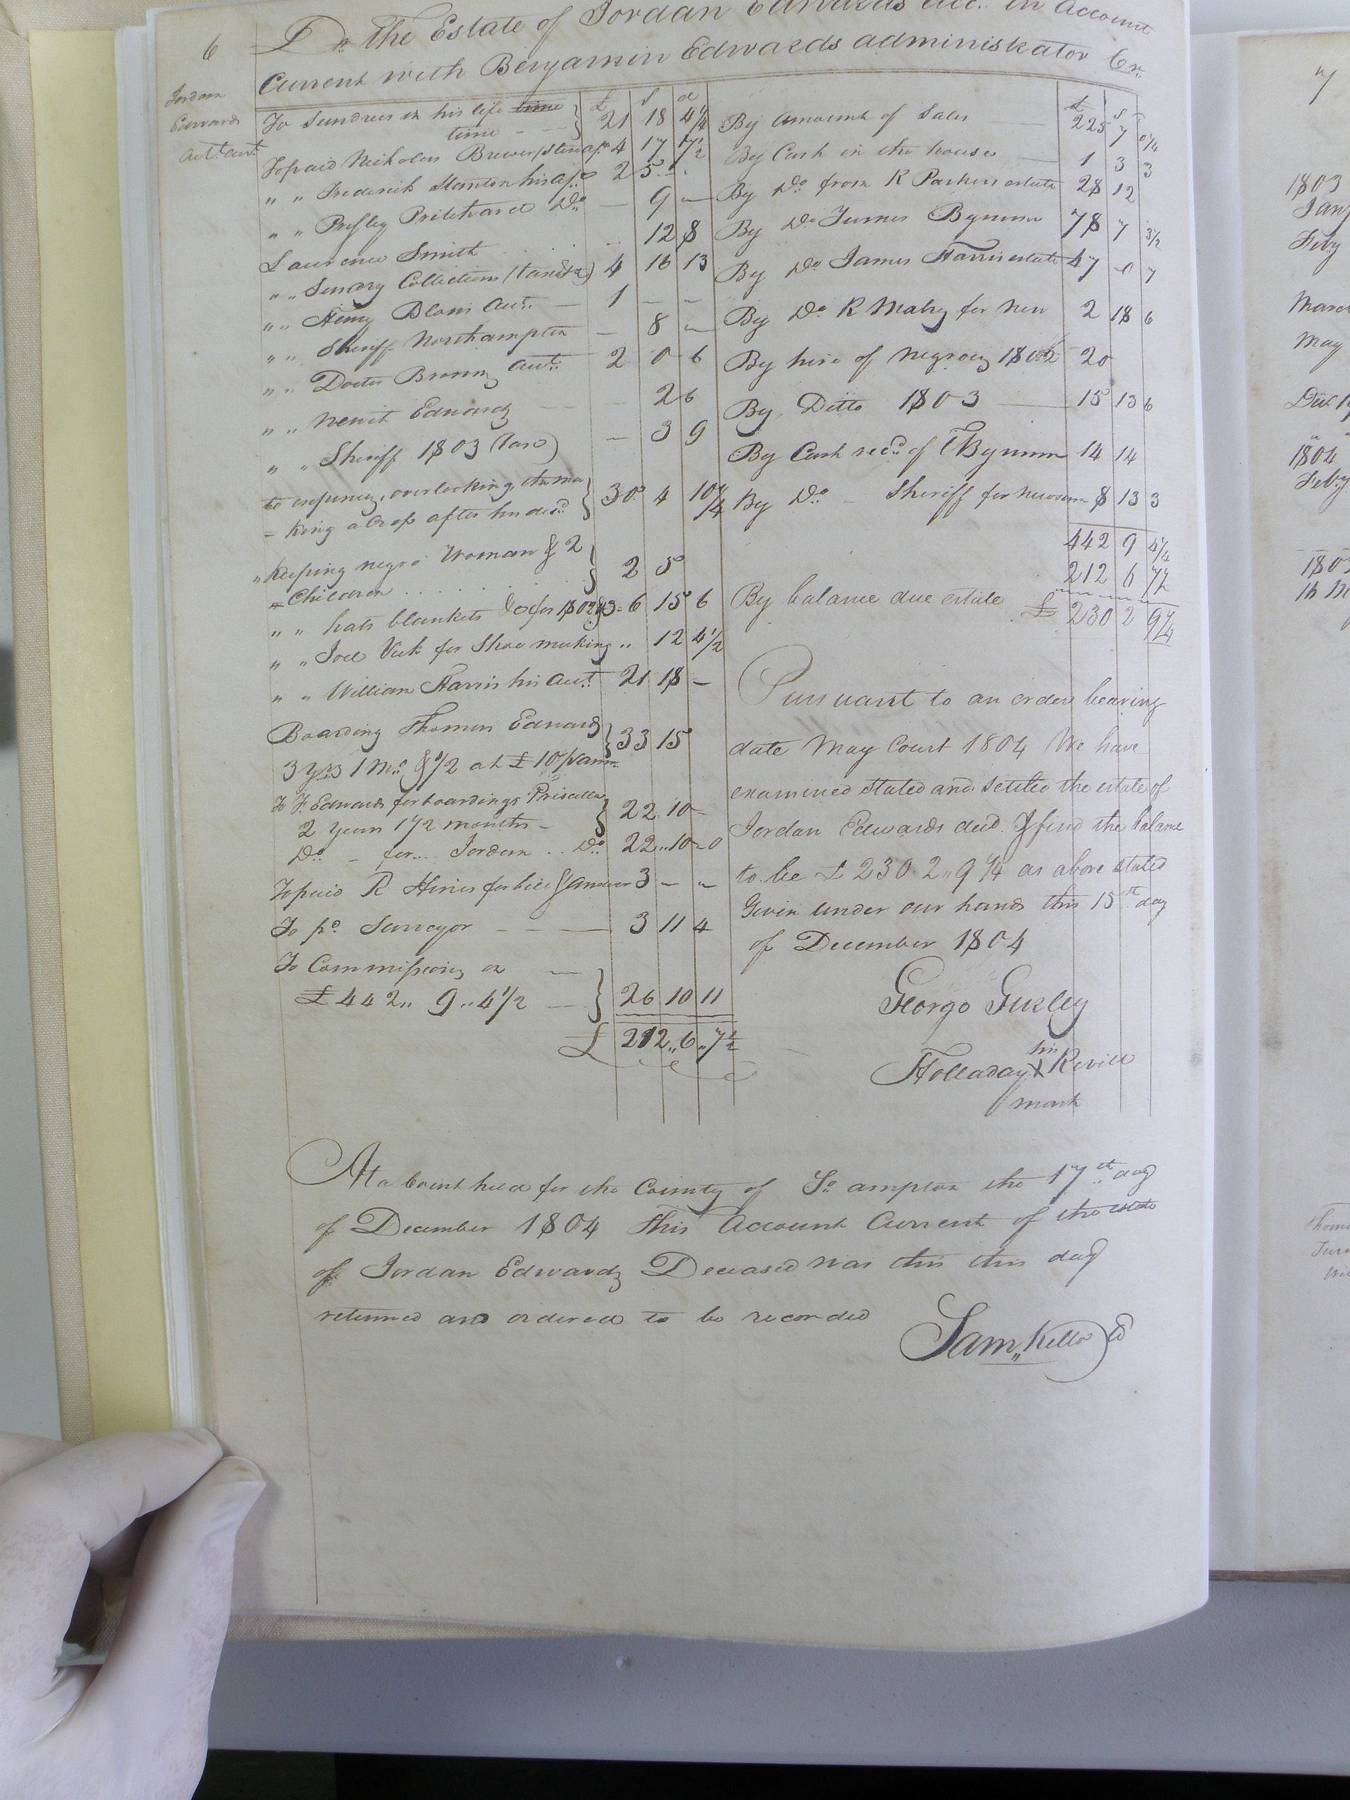 6
Dr The Estate of Jordan Edwards decd. in account
Current with Benjamin Edwards administrator Cr.
Jordan
Edwards
acct. curt.
£ S d
To Sundries in his life time
time - - } 21 18 4 1/4
To paid Nicholas Brewer 4 17 7 1/2
" " Frederick Stanton his a/c 2 5 " "
" " Presley Pritchard Do — 9 —
Laurence Smith . . . . 12 8
" " Sundry Collections 4 16 13
" " Henry Blows Acct. — 1 — —
" " Sheriff Northampton — 8 —
" " Doctor Browns acct. 2 0 6
" " Newit Edwards — — 2 6
" " Sheriff 1803 — 3 9
- king a Crop after his decd. } 30 4 10 1/4
" Keeping negro Woman & 2
Children . . . . . } 2 5
" " hats blankets &c for 1802 & 3 - 6 15 6
" " Joel Vick for Shoe making " 12 4 1/2
" " William Harris his acct. 21 18 —
Boarding Thomas Edwards
3 yrs 1 Mo. & 1/2 at £10 p ann. } 33 15
To F. Edwards for boarding Priscilla
2 Years 1 1/2 months - } 22 10 —
Do. - for... Jordan . . Do. 22 .. 10 - 0
To paid R Hines for bill & answer 3 — "
To pd. Surveyor — — — 3 11 4
To Commissions on —
£442 " 9 " 4 1/2 — } 26 10 11
£ 212 " 6 " 7 1/2
£ S
By amount of Sales — 225 7 0 1/4
By Cash in the house — 1 3 3
By Do. from R Parkers estate 28 12
By Do. Turner Bynum 78 7 3 1/2
By Do. James Harris estate 47 0 7
By Do. R Mabry for 2 18 6
By hire of negroes 1802 20
By Ditto 1803 — 15 13 6
By Cash recd. of T Bynum 14 14
By Do. - Sheriff for 8 13 3
442 9 4 1/4
212 6 7 1/2
By balance due estate £ 230 2 9 1/4
Pursuant to an order bearing
date May Court 1804 We have
examined stated and settled the estate of
Jordan Edwards decd. & find the balance
to be £230 2 " 9 1/4 as above stated
Given under our hands this 15th day
of December 1804
George Gurley
his
Holladay X Revill
mark
At a Court held for the County of So.ampton the 17th day
of December 1804 This Account Current of the estate
of Jordan Edwards Deceased was this this day
returned and ordered to be recorded
Sam. Kello Cl
7
1803
Jany
Feby
March
May
Dec 19
1804
Feby